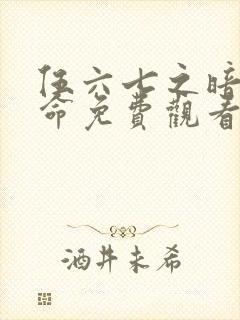 伍六七之暗
命免費觀看
酒井未希